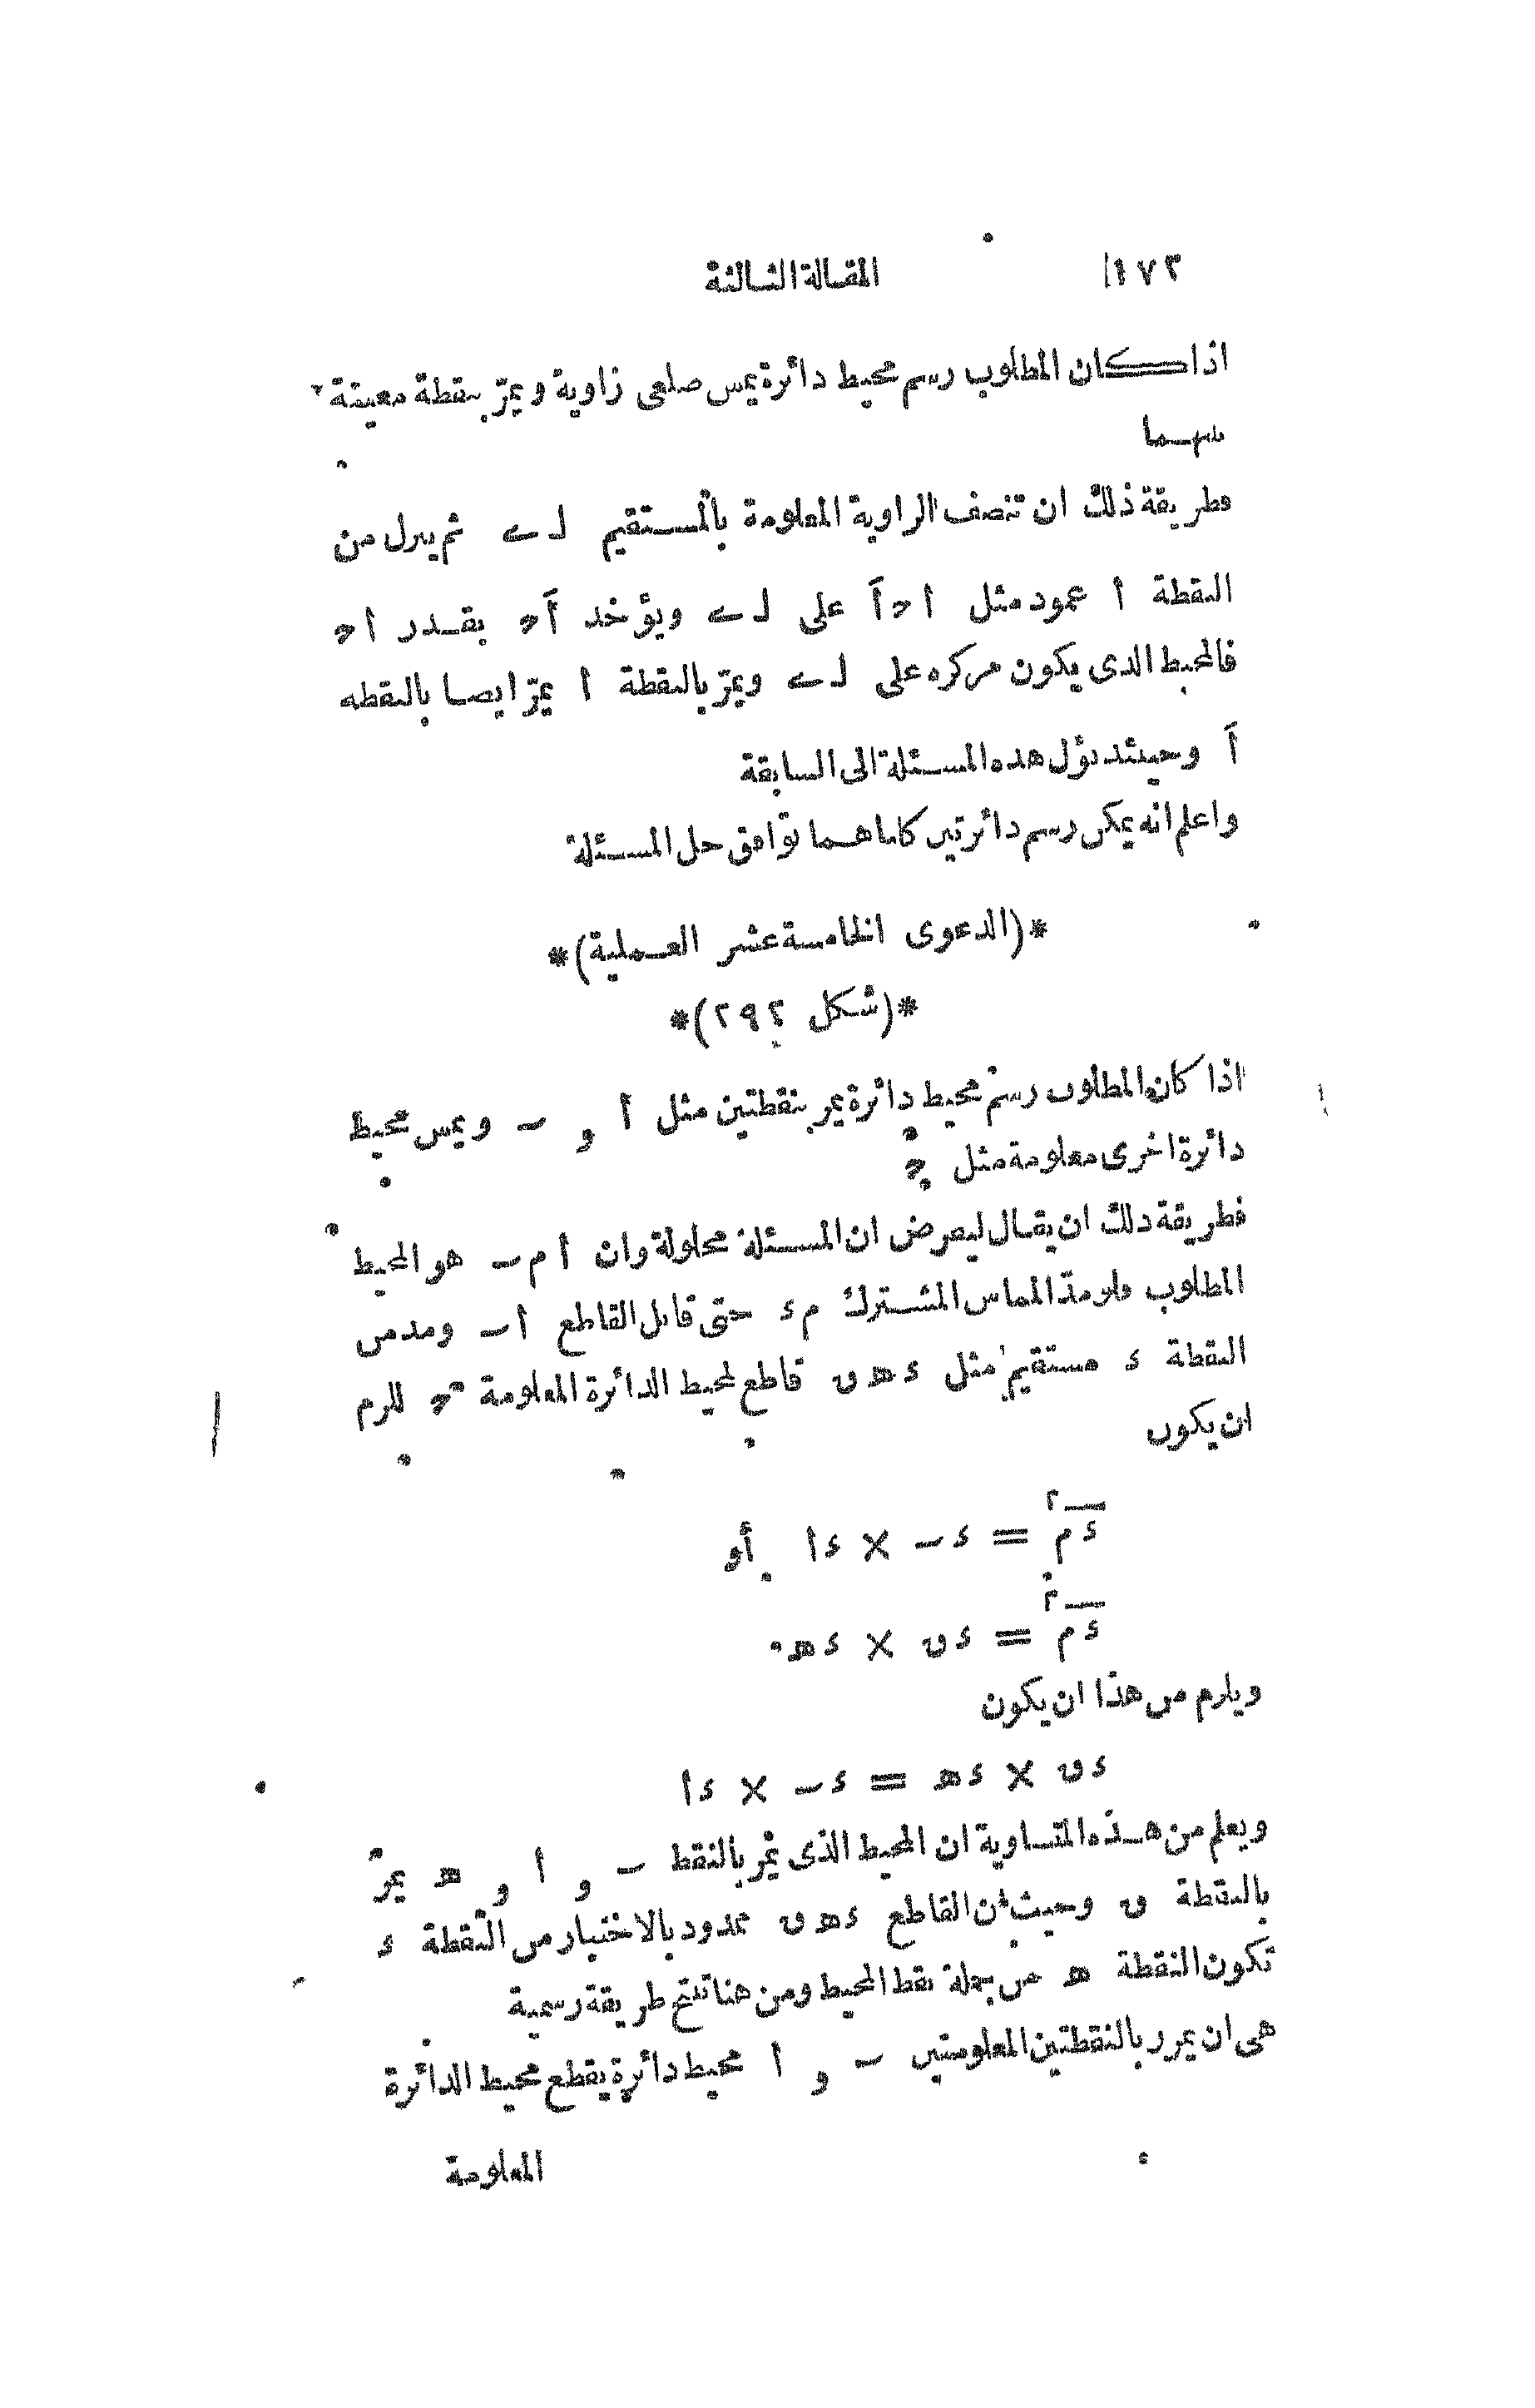 ١٧٢ المقالة الثالثة
اذا كان المطلوب رسم محيط دائرة يمس ضلعى زاوية ويمرّ بنقطة معينة
بينهما
فطريقة ذلك ان تنصف الزاوية المعلومة بالمستقيم ل ے ثم ينزل من
النقطة أ عمود مثل أ ح أَ على ل ے ويؤخذ أَ ح بقدر أ ح
فالمحيط الذى يكون مركزه على ل ے ويمرّ بالنقطة أ يمرّ ايضا بالنقطه
أَ وحينئذ تؤل هذه المسئلة الى السابقة
واعلم انه يمكن رسم دائرتين كلتاهما توافق حل المسئلة
*(الدعوى الخامسة عشر العملية)*
*(شكل ٢٩٢)*
اذا كان المطلوب رسم محيط دائرة يمر بنقطتين مثل أ و ب ويمس محيط
دائرة اخرى معلومة مثل ح
فطريقة ذلك ان يقال ليفرض ان المسئلة محلولة وان أ م ب هو المحيط
المطلوب فلو مدّ المماس المشترك م ء حتى قابل القاطع أ ب ومد من
النقطة ء مستقيم مثل ء ه ن قاطع لمحيط الدائرة المعلومة ح للزم
ان يكون
ء م٢ = ء ب × ء أ أو
ء م٢ = ء ن × ء ه
ويلزم من هذا ان يكون
ء ن × ء ه = ء ب × ء أ
ويعلم من هذه المتساوية ان المحيط الذى يمر بالنقط ب و أ و ه يمرّ
بالنقطة ن وحيث ان القاطع ء ه ن ممدود بالاختيار من النقطة ء
تكون النقطة ه من جملة نقط المحيط ومن هنا تنتج طريقة رسمية
هى ان يمرر بالنقطتين المعلومتين ب و أ محيط دائرة يقطع محيط الدائرة
المعلومة